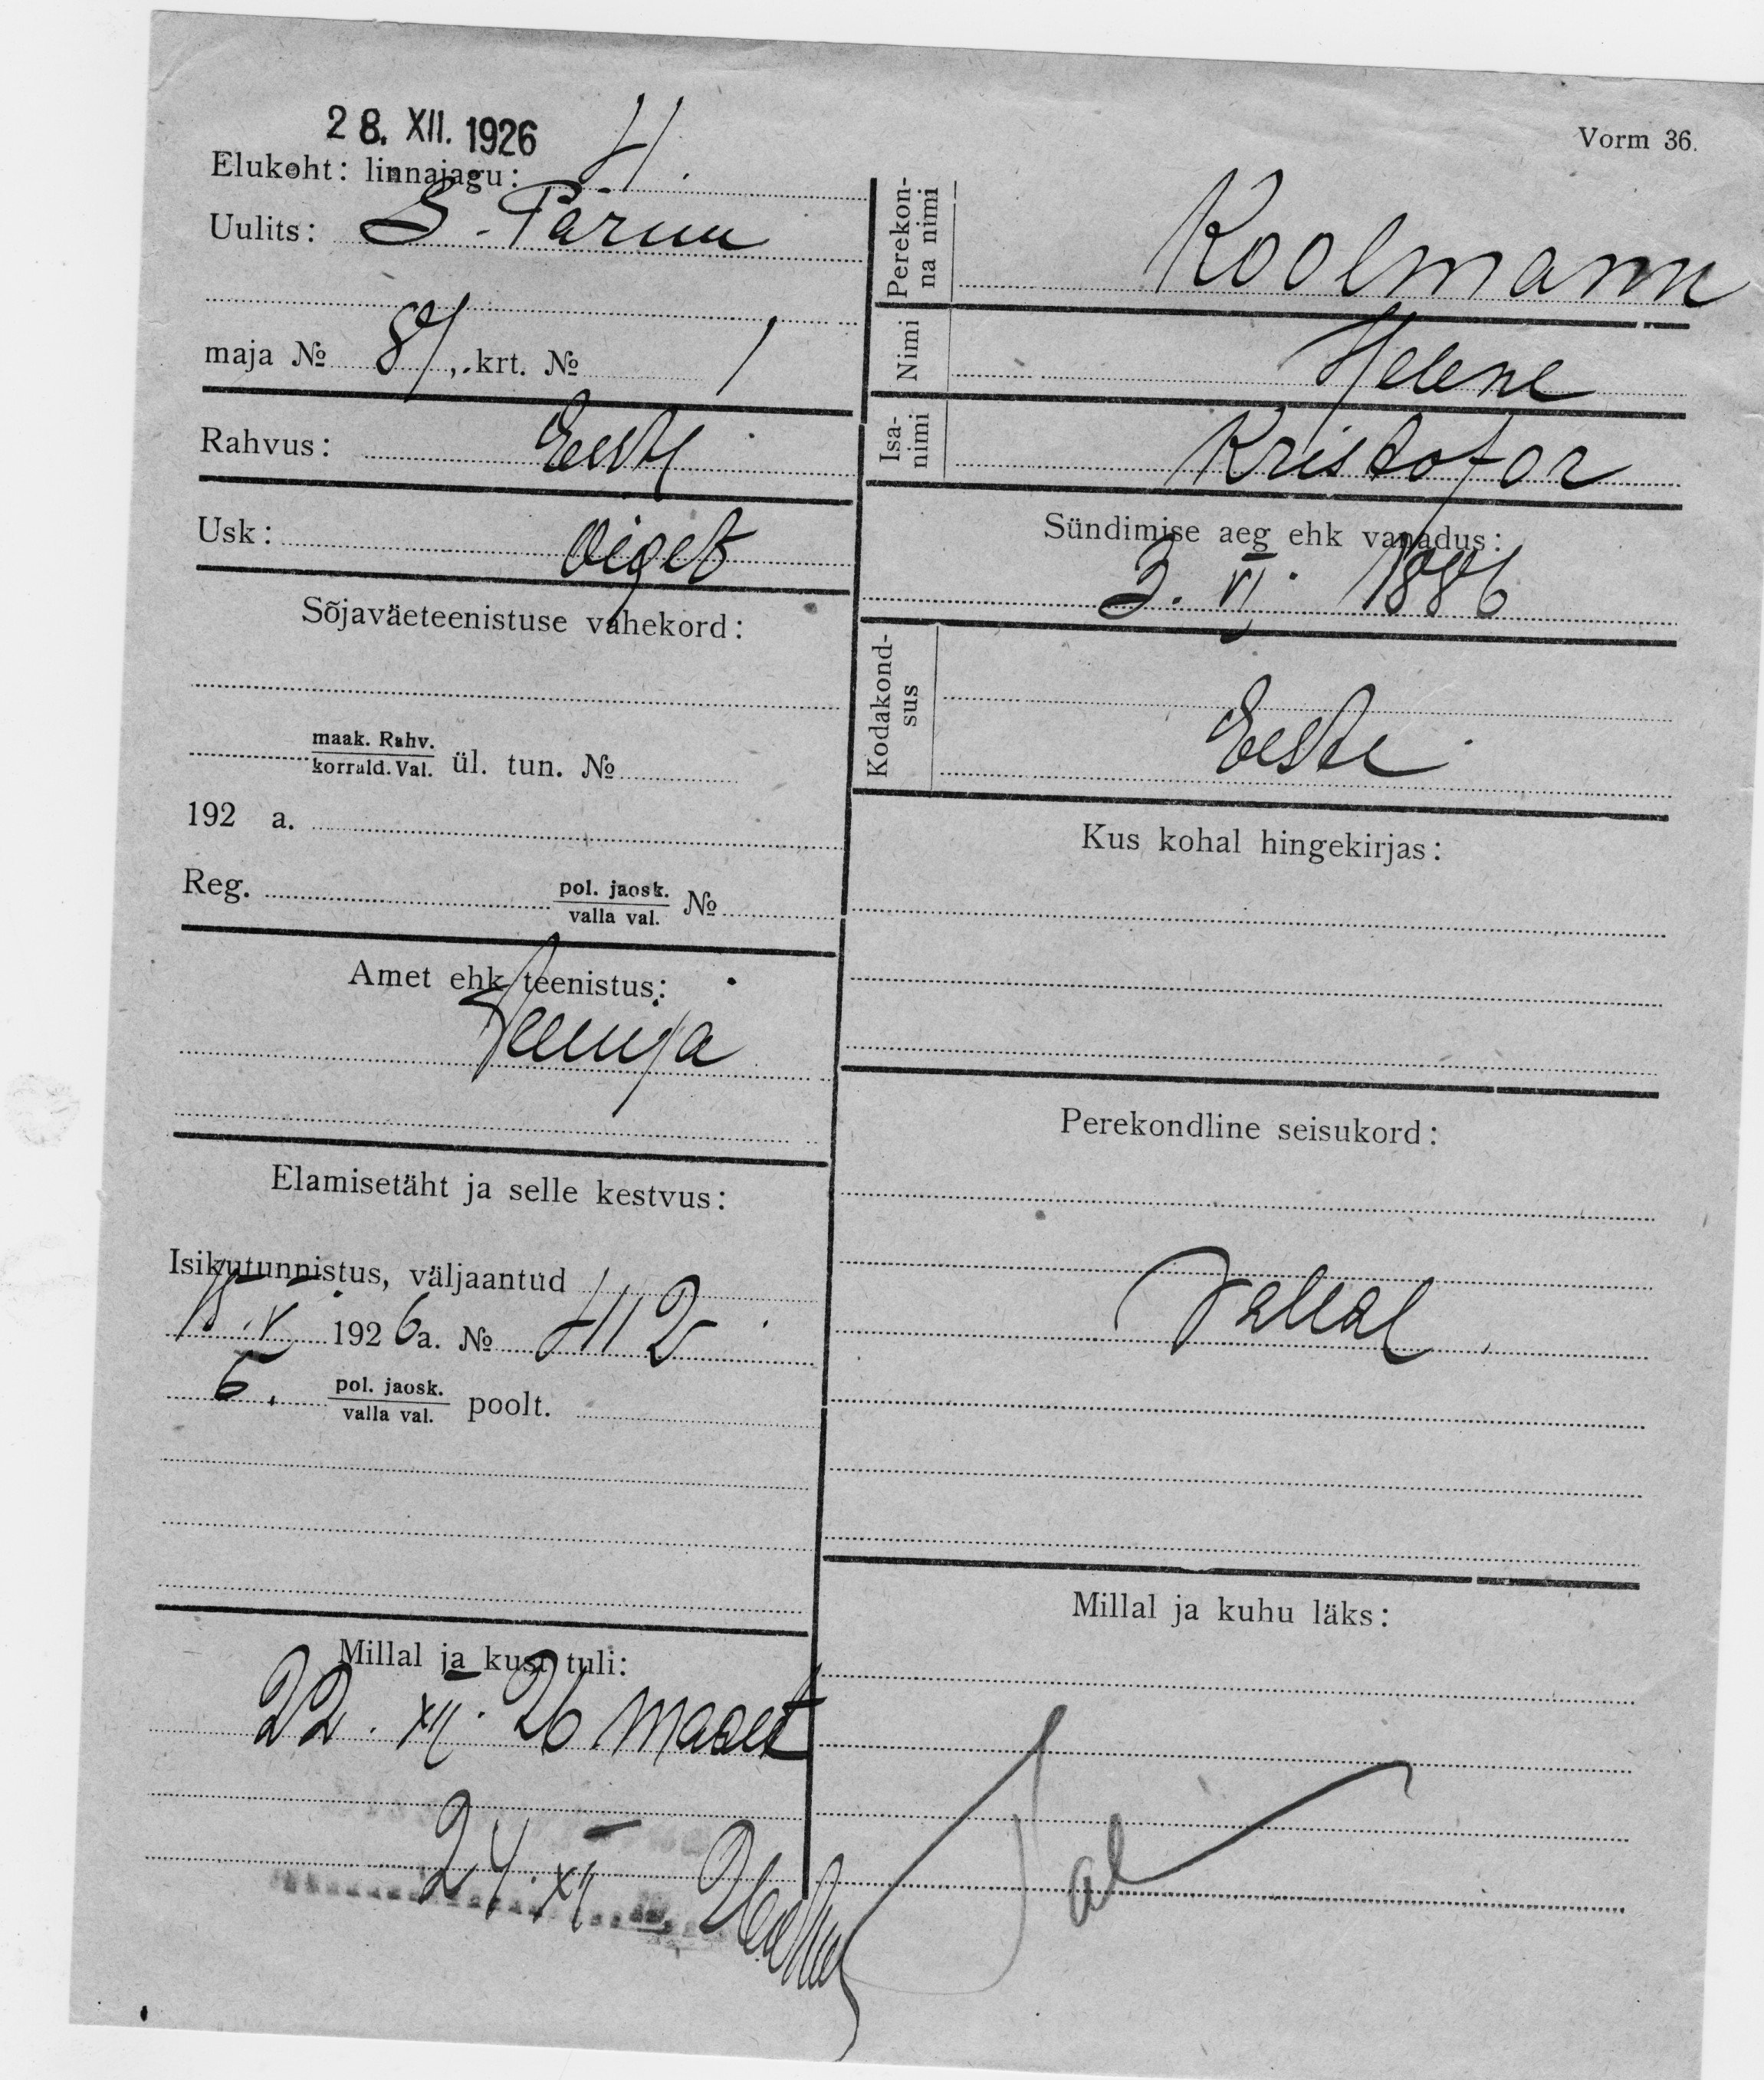 28. XII. 1926
Vorm 36.
Elukoht: linnajagu: 4.
Uulits: S. Pärnu
maja № 87, krt. № 1
Rahvus: Eesti
Usk: õigeb
Sõjaväeteenistuse vahekord:
maak. Rahv.
korrald. Val. ül. tun. №
192 a.
Reg. pol. jaosk.
valla val. №
Amet ehk teenistus:
Teenija
Elamisetäht ja selle kestvus:
Isikutunnistus, väljaantud
15. V 1926 a. № 412
6. pol. jaosk.
valla val. poolt.
Millal ja kust tuli:
22. XII. 26 maalt
24. XII 26
Perekonna nimi Koolmann
Nimi Helene
Isanimi Kristofor
Sündimise aeg ehk vanadus:
3. VI. 1886
Kodakondsus Eesti
Kus kohal hingekirjas:
Perekondline seisukord:
vallal.
Millal ja kuhu läks: